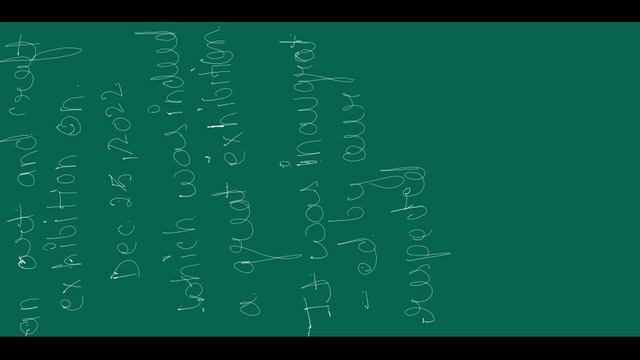 an art and craft
exhibition on.
Dec. 25, 2022
which was indeed
a great exhibition
It was inaugrat
-ed by our
respected